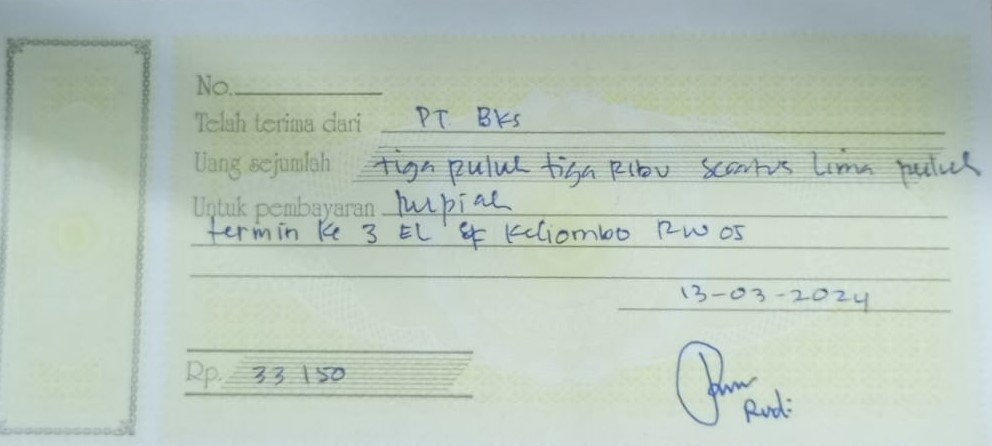 No.
Telah terima dari PT. BKS
Uang sejumlah tiga puluh tiga Ribu seratus Lima puluh
Untuk pembayaran rupiah
termin ke 3 EL Kaliombo RW 05
13-03-2024
Rp. 33 150
Rudi